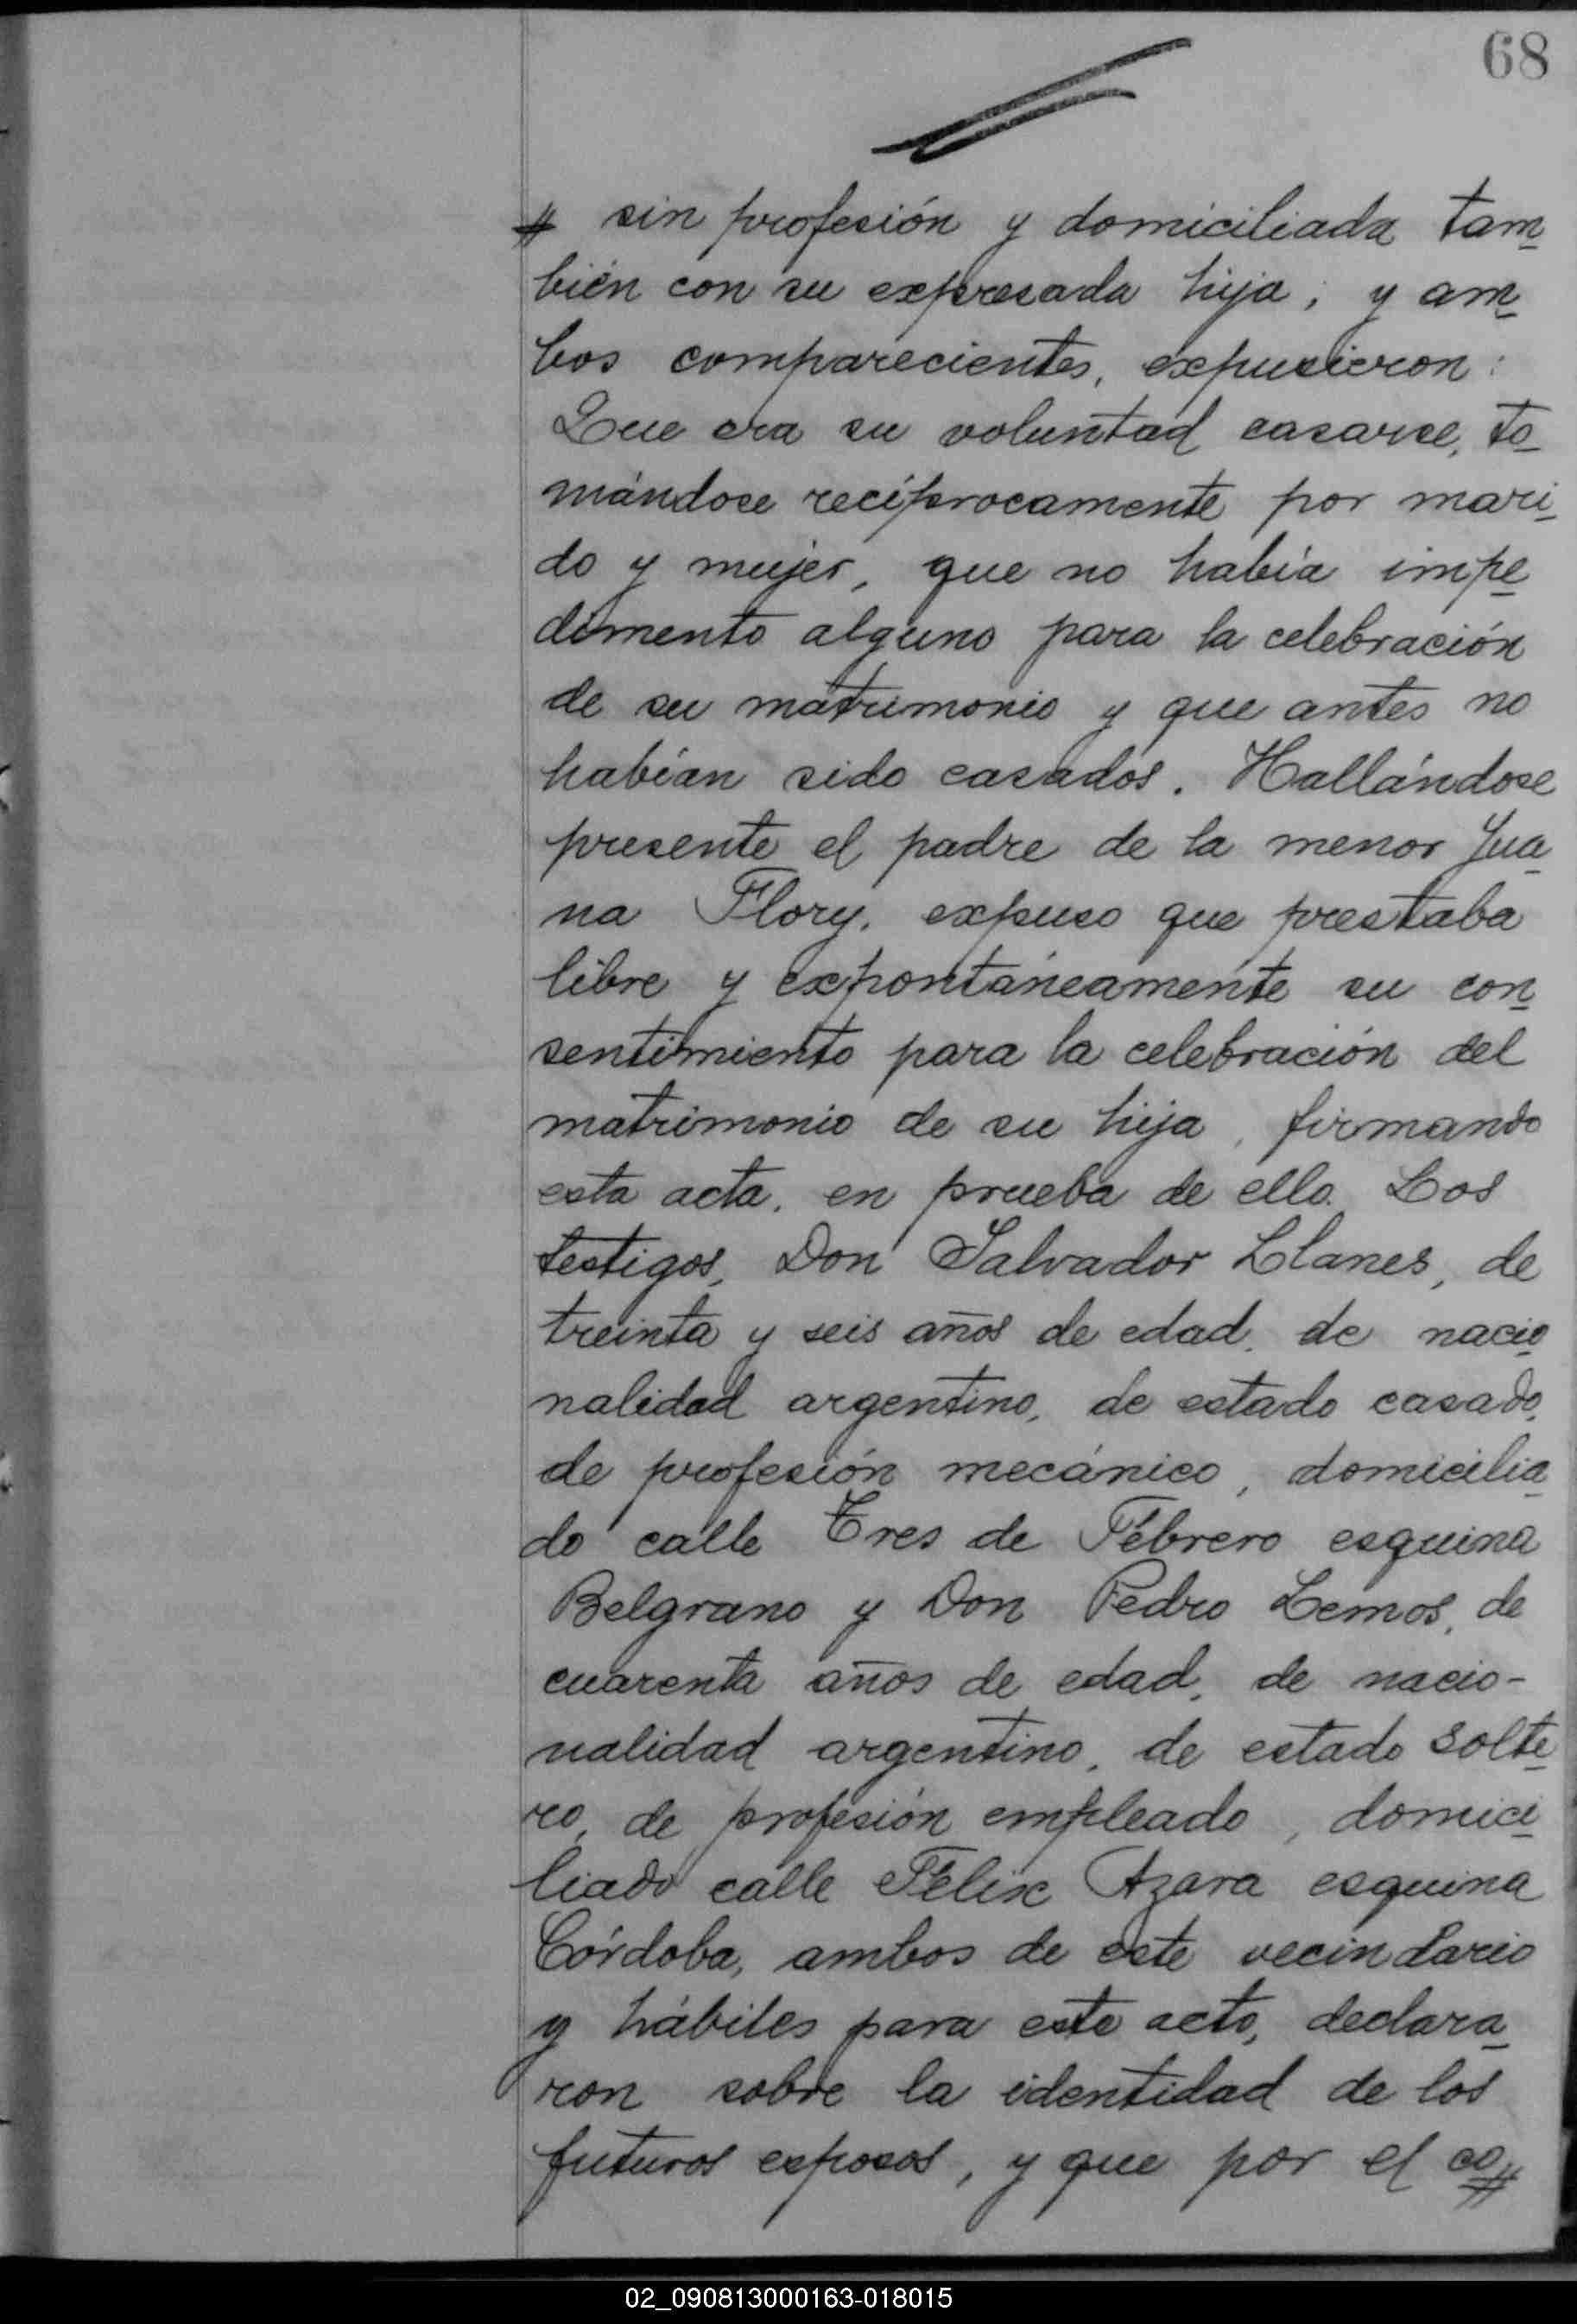 68
# sin profesión y domiciliada tam
bién con su expresada hija; y am
bos comparecientes, expusieron:
Que era su voluntad casarse, to
mándose recíprocamente por mari
do y mujer, que no había impe
dimento alguno para la celebración
de su matrimonio y que antes no
habían sido casados. Hallándose
presente el padre de la menor Jua
na Flory, expuso que prestaba
libre y expontáneamente su con
sentimiento para la celebración del
matrimonio de su hija, firmando
esta acta, en prueba de ello. Los
testigos, Don Salvador Llanes, de
treinta y seis años de edad, de nacio
nalidad argentino, de estado casado,
de profesión mecánico, domicilia
do calle Tres de Febrero esquina
Belgrano y Don Pedro Lemos, de
cuarenta años de edad, de nacio-
nalidad argentino, de estado solte
ro, de profesión empleado, domici
liado calle Félix Azara esquina
Córdoba, ambos de este vecindario
y hábiles para este acto, declara
ron sobre la identidad de los
futuros esposos, y que por el co#
02_090813000163-018015